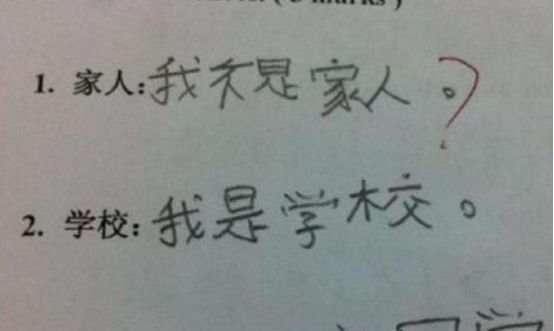 marks )
1. 家人:我不是家人。?
2. 学校:我是学校。